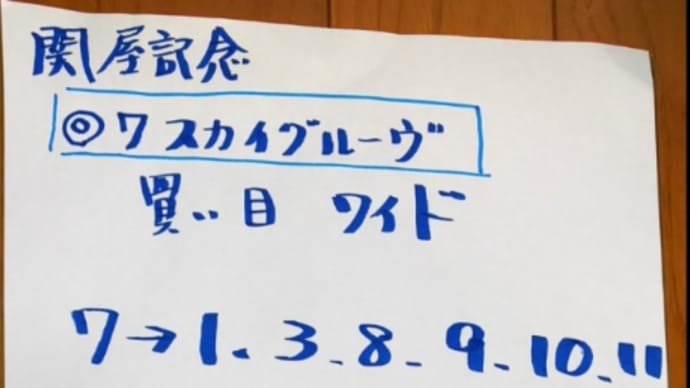 関屋記念
◎7 スカイグルーヴ
買い目 ワイド
7→1.3.8.9.10.11